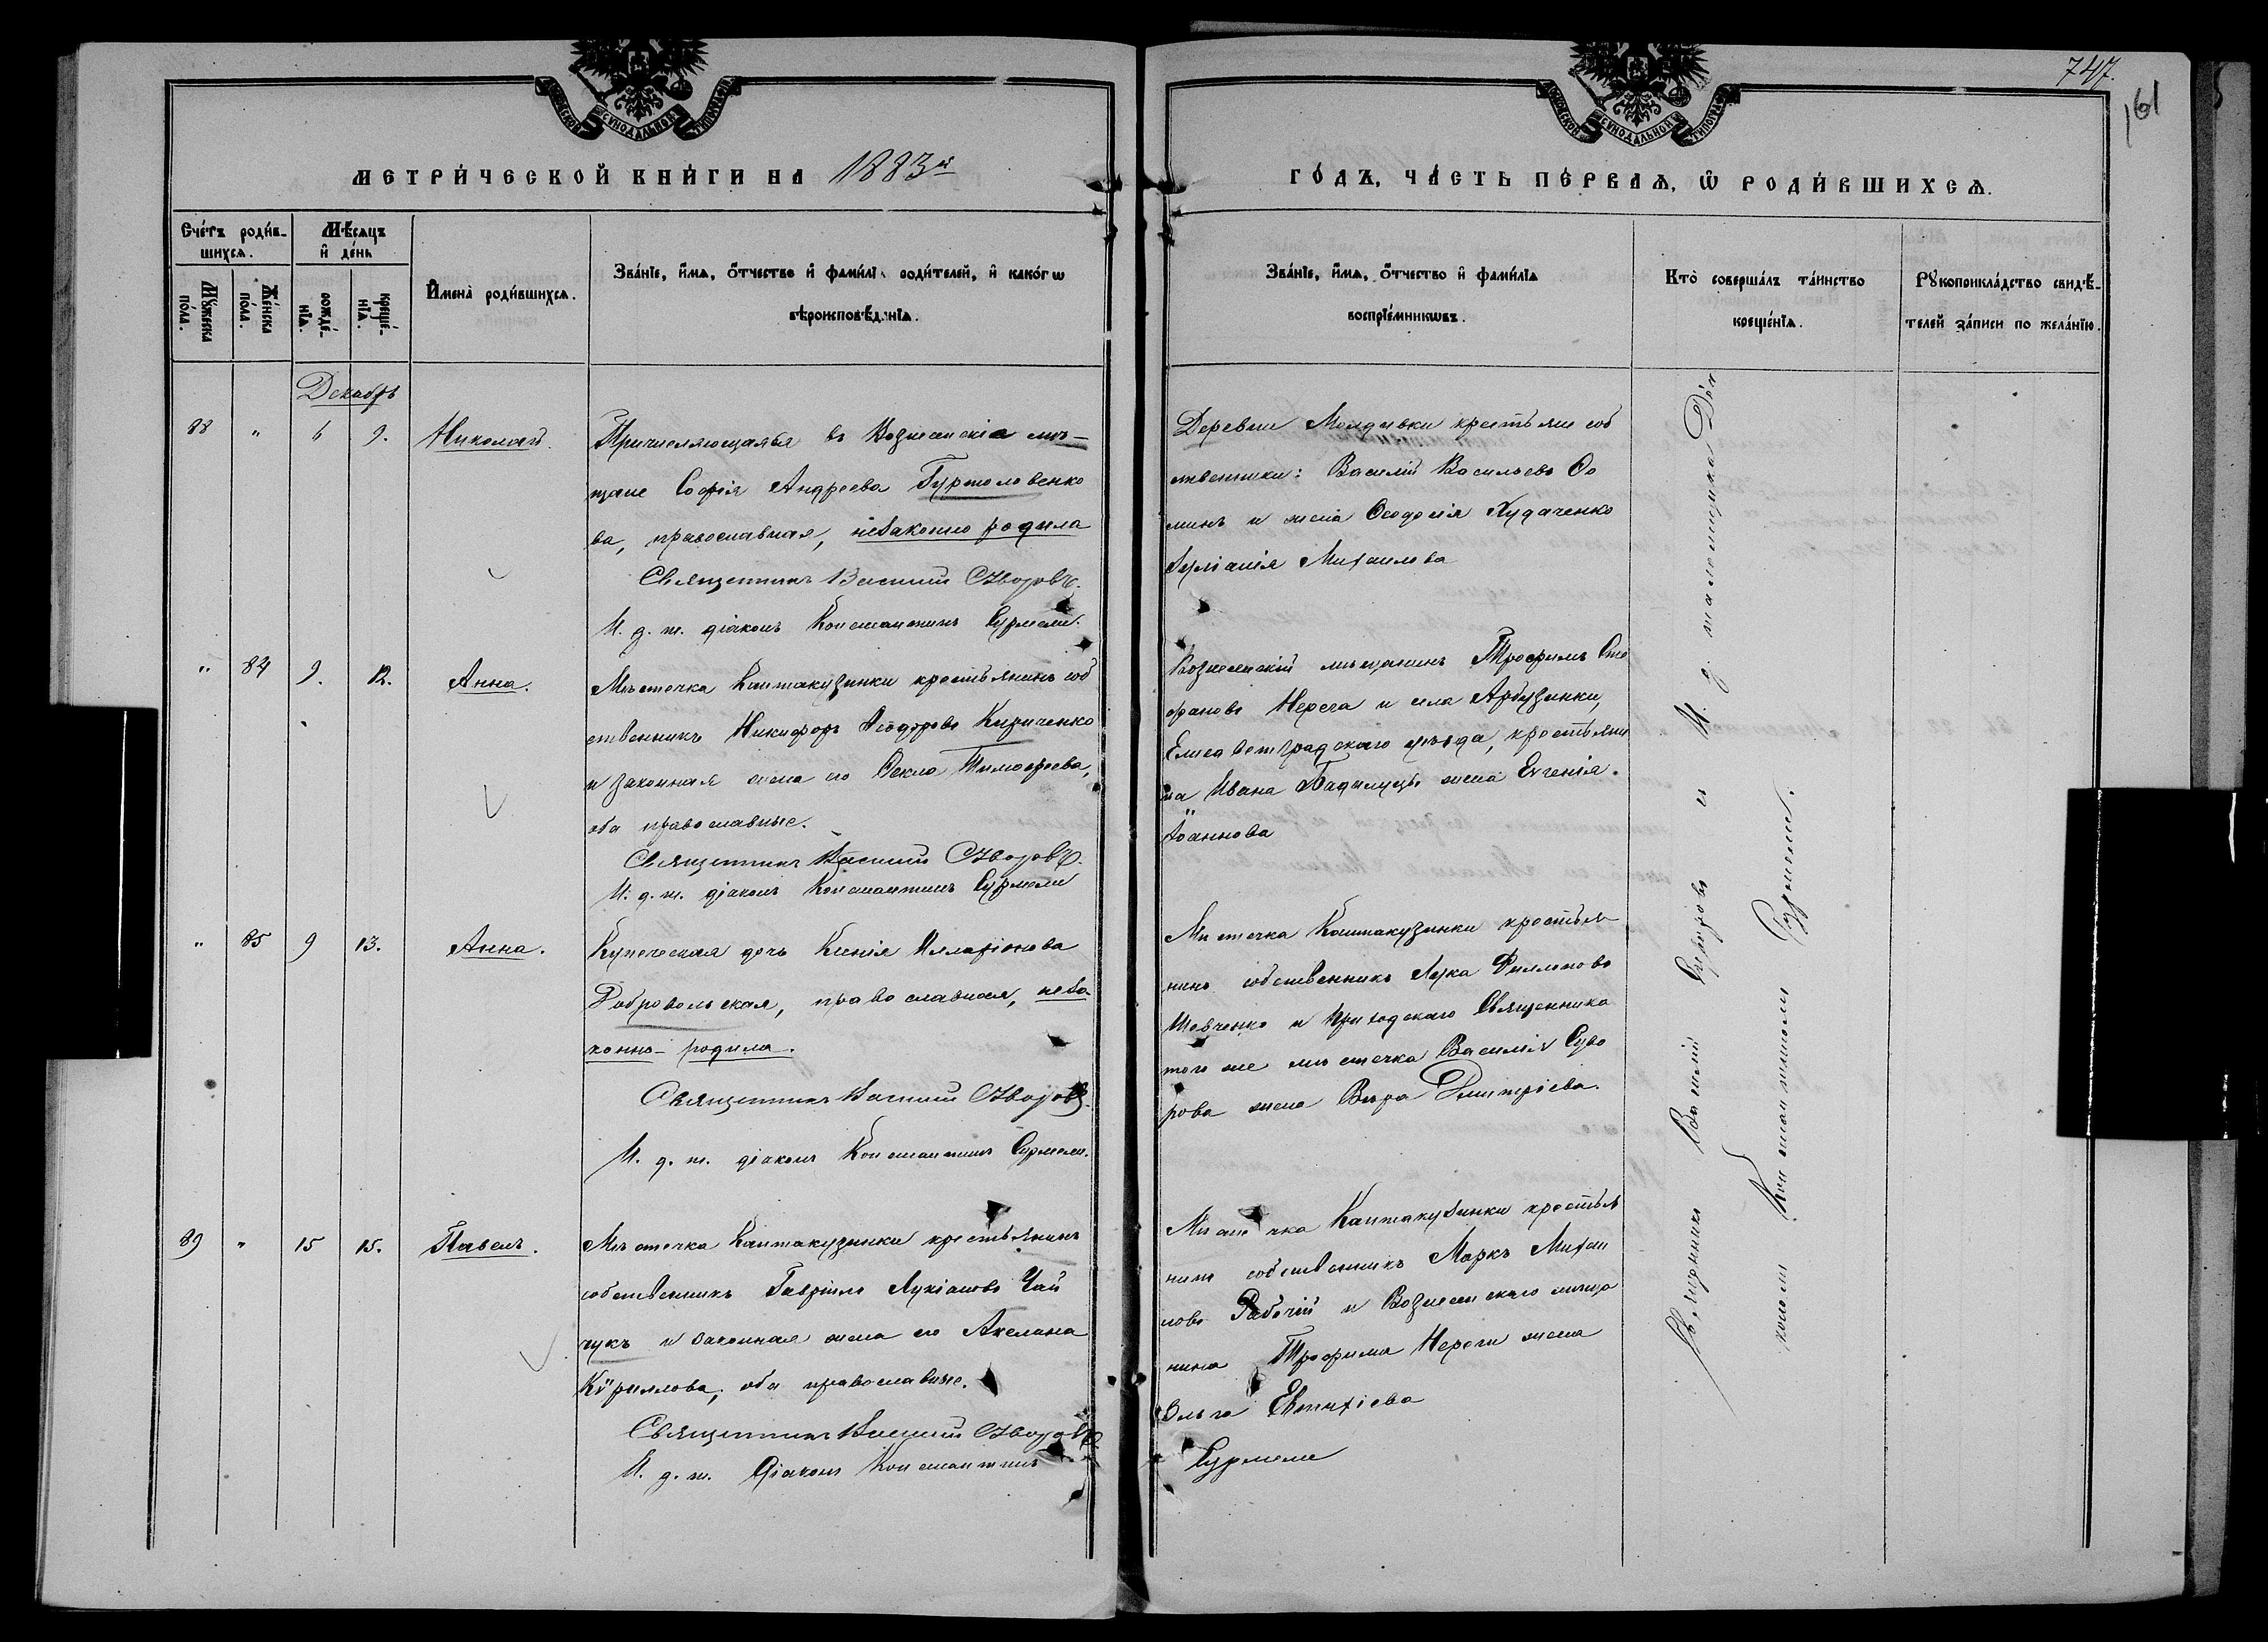 747.
161
МЕТРИ́ЧЕСКОЙ КНИ́ГИ НА 1883й
ГО́ДЪ, ЧА́СТЬ ПЕ́РВАѦ, Ѡ҆ РОДИ́ВШИХСѦ.
Сче́тъ роди́в-
шихсѧ.
Му́жеска по́ла.
Же́нска по́ла.
Мѣ́сѧцъ
и҆ де́нь
рожде́-
нїѧ.
креще́-
нїѧ.
И҆мена̀ роди́вшихсѧ.
Зва́нїе, и҆́мѧ, о҆́тчество и҆ фами́лїѧ роди́телей, и҆ како́гѡ
вѣроисповѣ́данїѧ.
Зва́нїе, и҆́мѧ, о҆́тчество и҆ фами́лїѧ
воспрїе́мникѡвъ.
Кто̀ соверша́лъ та́инство
креще́нїѧ.
Рꙋкоприкла́дство свидѣ́-
телей за́писи по жела́нїю.
Декабрь
88 " 6 9. Николай.
Причисляющаяся въ Вознесенскіе мѣ-
щане Софія Андреева Гуртоловенко
ва, православная, незаконно родила
Священникъ Василій Суворовъ.
И. д. п. діаконъ Константинъ Сурмели.
Деревни Молдавки крестьяне соб
ственники: Василій Васильевъ Ѳо
минъ и жена Ѳеодосія Худаченко
Іуліанія Михаилова
" 84 9. 12. Анна.
Мѣстечка Кантакузинки крестьянинъ соб
ственникъ Никифоръ Ѳеодоровъ Кириченко
и законная жена его Ѳекла Тимофеева,
оба православные.
Священникъ Василій Суворовъ.
И. д. п. діаконъ Константинъ Сурмели
Вознесенскій мѣщанинъ Трофимъ Сте
фановъ Нерега и села Арбузинки,
Елисаветградскаго уѣзда, крестьяни
на Ивана Бадылуцы жена Евгенія
Іоаннова
" 85 9 13. Анна.
Купеческая дочь Ксенія Илларіонова
Добровольская, православная, неза
конно- родила.
Священникъ Василій Суворовъ.
И. д. п. діаконъ Константинъ Сурмели.
Мѣстечка Кантакузинки крестья
нинъ собственникъ Лука Филиповъ
Шевченко и приходскаго Священника
того же мѣстечка Василія Суво
рова жена Вѣра Димитріева.
89 " 15 15. Павелъ.
Мѣстечка Кантакузинки крестьянинъ
собственникъ Гавріилъ Лукіановъ Чай
чукъ и законная жена его Акелина
Кѵриллова, оба православные.
Священникъ Василій Суворовъ.
И. д. п. Діаконъ Константинъ
Мѣстечка Кантакузинки крестья
нинъ собственникъ Маркъ Михаи
ловъ Рабочій и Вознесенскаго мѣща
нина Трофима Нереги жена
Ольга Евтихіева
Сурмели
Священникъ Василій Суворовъ и И. д. псаломщика Діа
кономъ Константиномъ Сурмели.